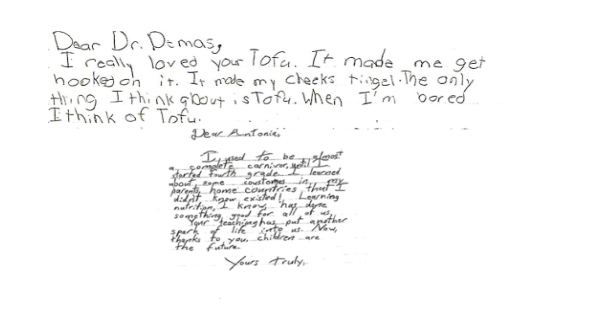 Dear Dr. Demas,
I really loved your Tofu. It made me get
hooked on it. It made my cheeks tingel. The only
thing I think about is Tofu. When I'm bored
I think of Tofu.
Dear Antonia,
I used to be almost
a complete carnivor, until I
started fourth grade. I learned
about some coustomes in my
parents home countries that I
didn't know existed! Learning
nutrition, I know, has done
something good for all of us.
Your teaching has put another
spark of life into us. Now,
thanks to you, children are
the future.
Yours truly,